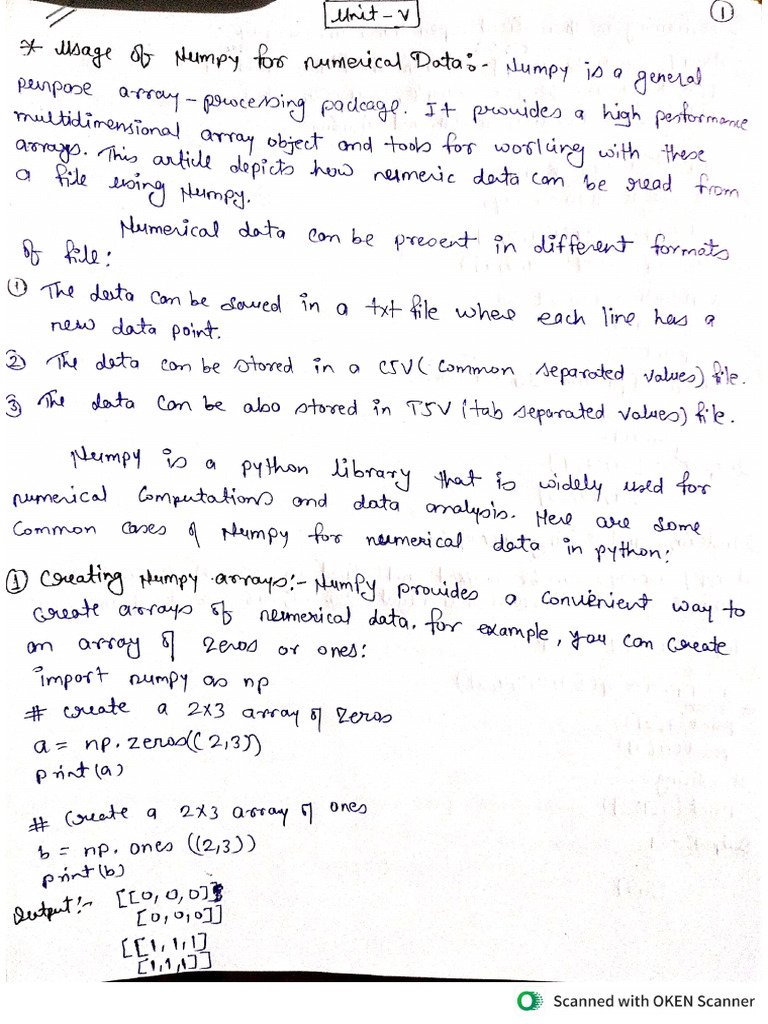 Unit-V
1
* Usage of Numpy for Numerical Data:- Numpy is a general
purpose array-processing package. It provides a high performance
multidimensional array object and tools for working with these
arrays. This article depicts how numeric data can be read from
a file using Numpy.
Numerical data can be present in different formats
of file:
① The data can be saved in a txt file where each line has a
new data point.
② The data can be stored in a CSV (Common separated values) file.
③ The data can be also stored in TSV (tab separated values) file.
Numpy is a python library that is widely used for
numerical computations and data analysis. Here are some
Common cases of Numpy for numerical data in python:
① Creating Numpy arrays:- NumPy provides a convienient way to
create arrays of numerical data. for example, you can create
an array of zeros or ones:
import numpy as np
# create a 2x3 array of zeros
a = np.zeros((2,3))
print(a)
# create a 2x3 array of ones
b = np.ones((2,3))
print(b)
Output:- [[0,0,0]
[0,0,0]]
[[1,1,1]
[1,1,1]]
Scanned with OKEN Scanner